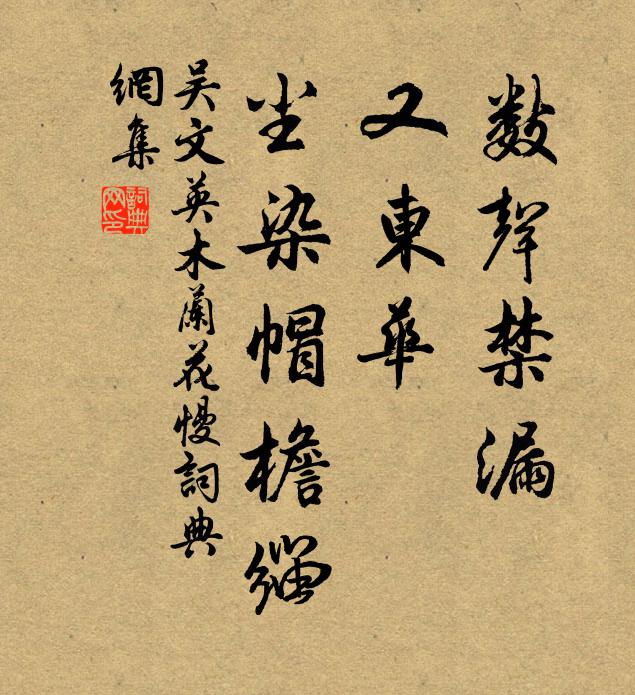 數聲禁漏
又東華
塵染帽檐緇
吳文英木蘭花慢詞典
網集
詞典
网印